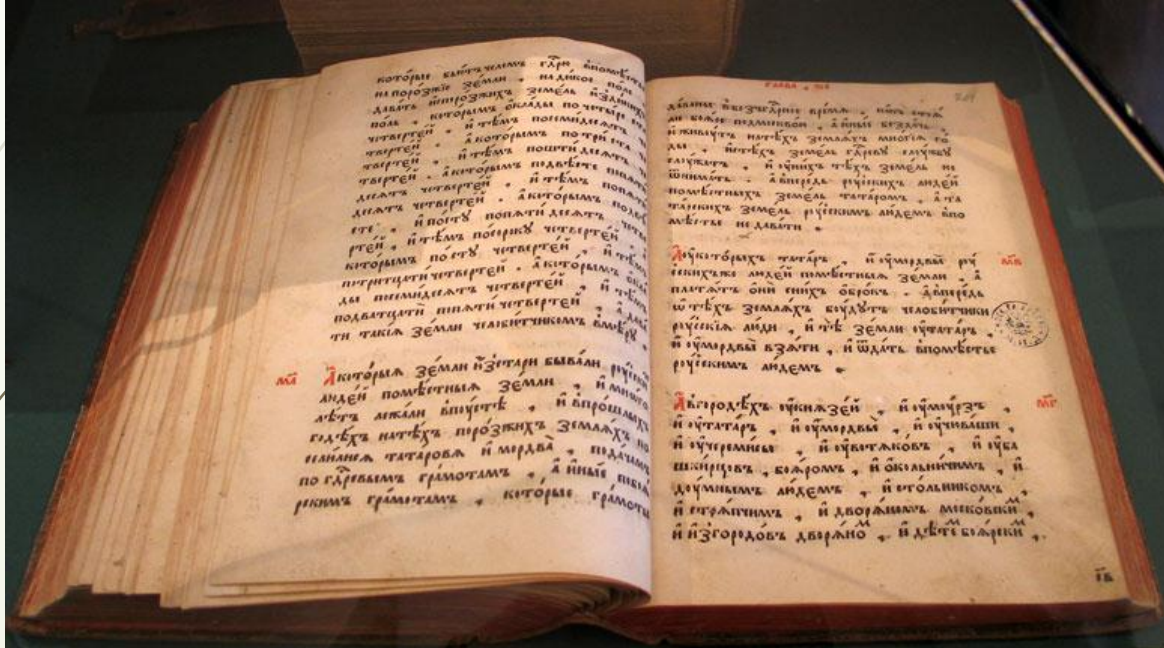 которые бью́тъ челомъ гдⷭ҇рю впомѣстья
на порозжїе зе́мли , на дикое поле
дава́ть исъ поро́зжихъ земе́ль
поль , которымъ окла́ды по четы́ре ста
четвертє́й , и҆ тѣ́мъ посемидеся́тъ
твертє́й , а҆которымъ по три́ ста
твертє́й , и҆ тѣ́мъ пошти десятъ
твертє́й . а҆которымъ подвѣ́сте
деся́тъ четвертє́й , и҆ тѣ́мъ попяти
деся́тъ четвертє́й . а҆кото́рымъ подвѣ
сте . и҆ по сту̀ попяти деся́тъ четве
ртє́й , и҆ тѣ́мъ посороку̀ четвертє́й ,
кото́рымъ по сту̀ четвертє́й , и҆ тѣ́мъ
потритцати четвертє́й . а҆кото́рымъ окла
ды посемидеся́тъ четвертє́й , и҆ тѣ́мъ
подватцати попяти четвертє́й . а҆ дава
ти такі́я зе́мли челоби́тчикомъ вмѣ́ру ,
м҃а А҆которыя зе́мли и҆зстари быва́ли ру́ски
люде́й помѣ́стныя зе́мли , и҆ мно́го
лѣ́тъ лежа́ли впу́стѣ , и҆ впро́шлыхъ
годѣ́хъ натѣ́хъ поро́зжихъ земля́хъ по
сели́лися татаровя и҆ мордва̀ , пода́чамъ
по гдⷭ҇ревымъ гра́мотам , а҆ и҆ны́е побоя́
рскимъ гра́мотамъ , кото́рые гра́моты
глава , ѕ҃і
да́ваны вбезгдⷭ҇рное вре́мя , какъ стоя́
ли боя́ре подмоско́ю , а҆ и҆ны́е безда́чь
и҆ живу́тъ натѣ́хъ земля́хъ мно́гія го
ды , и҆стѣ́хъ земе́ль гдⷭ҇реву слу́жбу
слу́жатъ , и҆ у҆ни́хъ тѣ́хъ земе́ль не
ѿнима́ть . а҆впере́дь ру́сскихъ люде́й
помѣ́стныхъ земе́ль тата́ромъ , а҆ та
та́рскихъ земе́ль ру́сскимъ лю́демъ впо
мѣ́стье не дава́ти .
А҆у҆кото́рыхъ тата́ръ , и҆ у҆мордвы̀ ру́ м҃в
сскихъже люде́й помѣ́стныя зе́мли , а҆
пла́тятъ о҆нѝ сни́хъ о҆бро́къ . а҆впере́дь
ѡ҆ тѣ́хъ земля́хъ бу́дутъ челоби́тчики
ру́сскія лю́ди , и҆ тѣ̀ зе́мли у҆тата́ръ ,
и҆ у҆мордвы̀ взя́ти , и҆ ѿда́ть впомѣ́стье
ру́сскимъ лю́демъ .
А҆вгородѣ́хъ у҆князе́й , и҆ у҆му́рзъ , м҃г
и҆ у҆тата́ръ , и҆ у҆мордвы̀ , и҆ у҆чюва́ши ,
и҆ у҆череми́сы , и҆ у҆вотяко́въ , и҆ у҆ба
шки́рцовъ , боя́ромъ , и҆ о҆ко́льничимъ , и҆
ду́мнымъ лю́демъ , и҆ сто́льникомъ ,
и҆ стря́пчимъ , и҆ дворя́номъ моско́вскиⷨ ,
и҆ и҆згородо́въ дворя́ноⷨ , и҆ дѣ́теⷨ боя́рскиⷨ ,